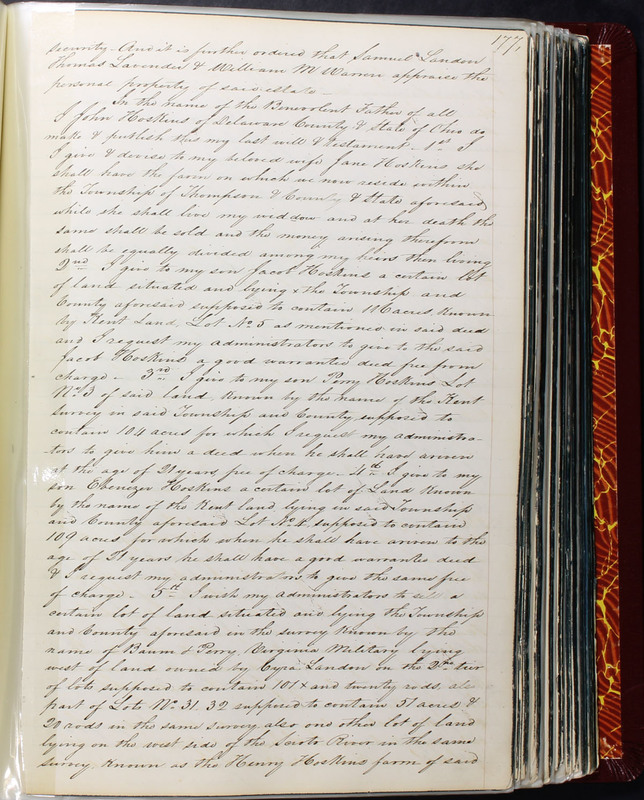 177
security. And it is further ordered that Samuel Landon
Thomas Lavender & William M Warren appraise the
personal property of said estate –
In the name of the Benevolent Father of all
I John Hoskins of Delaware County & State of Ohio do
make & publish this my last will & testament. 1st
I give & devise to my beloved wife Jane Hoskins she
shall have the farm on which we now reside within
the Township of Thompson & County & State aforesaid
while she shall live my widdow and at her death the
same shall be sold and the money arising therefrom
shall be equally divided among my heirs then living
2nd I give to my son Jacob Hoskins a certain lot
of land situated and lying x the Township and
County aforesaid supposed to contain 116 acres known
by Kent Land, Lot No 5 as mentioned in said deed
and I request my administrators to give to the said
Jacob Hoskins a good warrantee deed free from
charge – 3rd I give to my son Perry Hoskins Lot
No 3 of said land known by the name of the Kent
Survey in said Township and County supposed to
contain 104 acres for which I request my administra-
-tors to give him a deed when he shall have ariven
at the age of 21 years, free of charge – 4th I give to my
son Ebenezer Hoskins a certain lot of Land known
by the name of the Kent land lying in said Township
and County aforesaid Lot No 4 supposed to contain
109 acres for which when he shall have ariven to the
age of 21 years he shall have a good warrantee deed
& I request my administrators to give the same free
of charge – 5th I wish my administrators to sell a
certain lot of land situated and lying the Township
and County aforesaid in the survey known by the
name of Baum & Perry, Virginia Military lying
west of land owned by Landon in the 2nd tier
of lots supposed to contain 101 x and twenty rods, also
part of Lots No 31 32 supposed to contain 51 acres &
29 rods in the same survey also one other lot of land
lying on the west side of the Scioto River in the same
survey, known as the Henry Hoskins farm of said